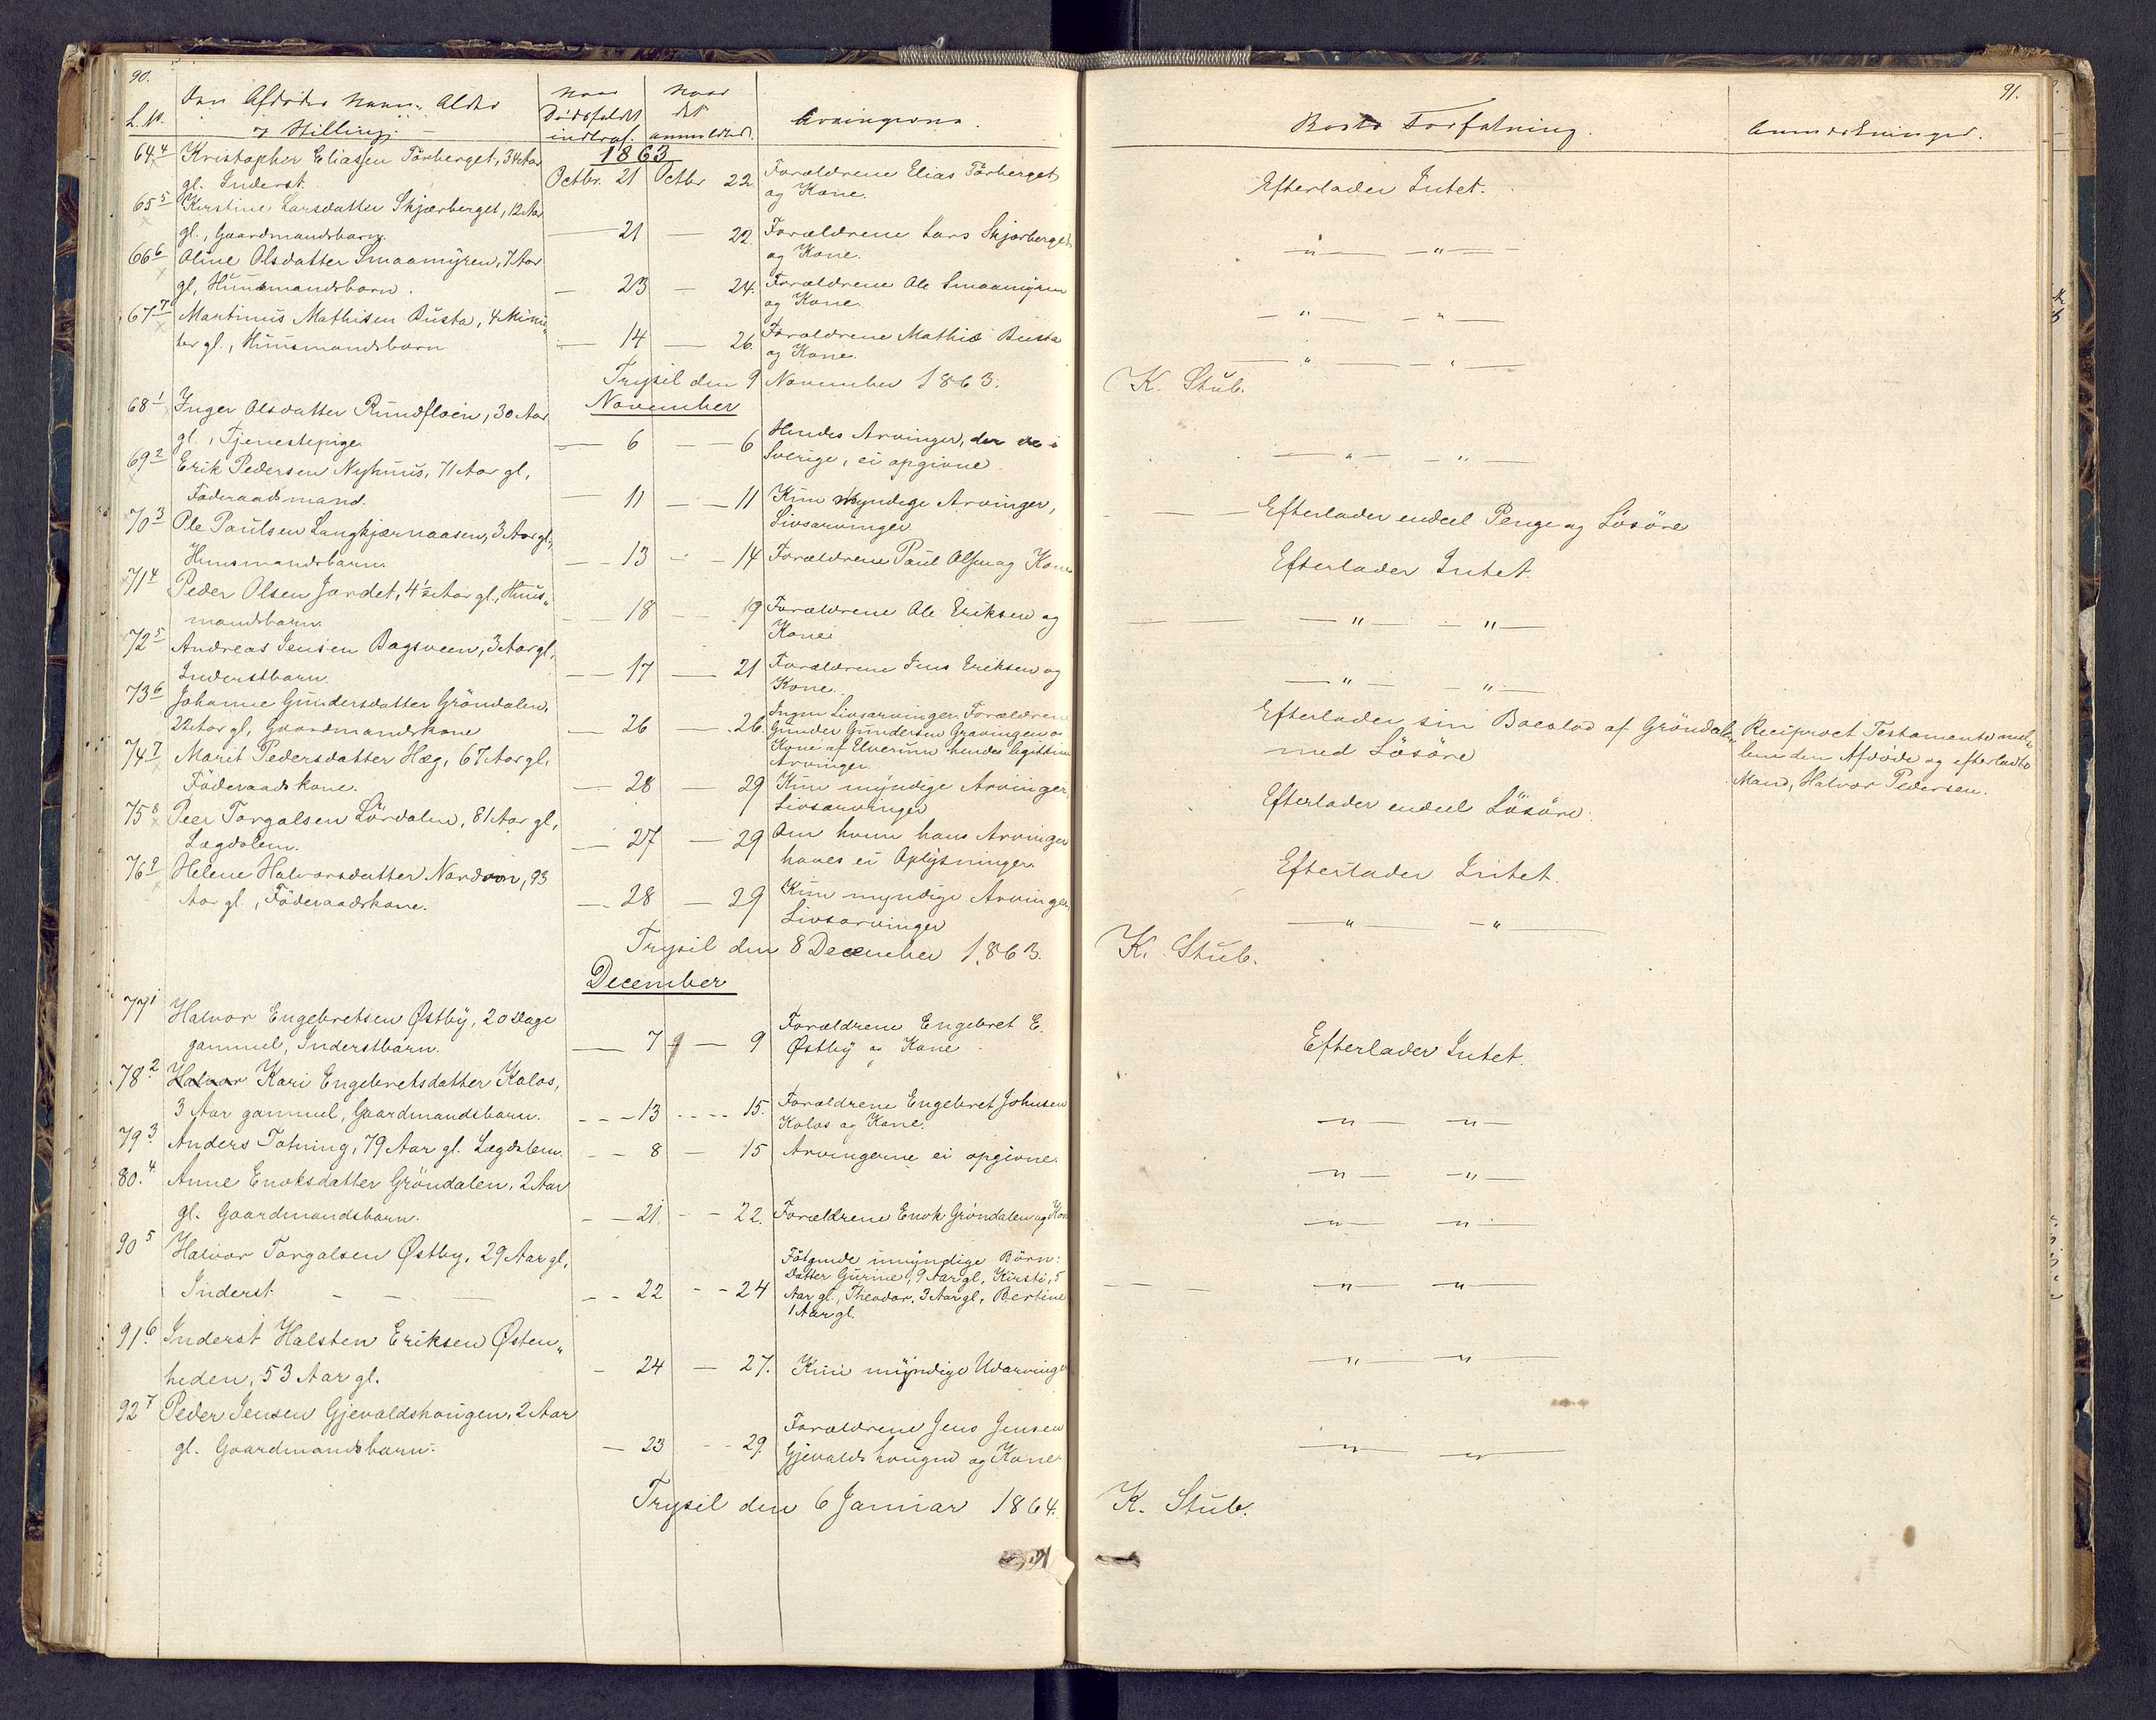 90.
L. N. Den Afdødes Navn, Alder
& Stilling.
Naar Dødsfaldet indtraf.
Naar det anmeldtes.
Arvingerne.
1863
64. 4 Kristopher Eliassen Törberget, 34 Aar
gl. Inderst.
Octbr. 21 Octbr 22.
Forældrene Elias Törberget
og Kone.
65 5 Kirstine Larsdatter Skjærberget, 12 Aar
gl., Gaardmandsbarn.
— 21 — 22.
Forældrene Lars Skjærberget
og Kone.
66 6 Oline Olsdatter Smaamyren, 7 Aar
gl, Huusmandsbarn.
— 23 — 24.
Forældrene Ole Smaamyren
og Kone.
67 7 Martinus Mathisen Busta, 4 Minu„
ter gl., Huusmandsbarn
— 14 — 26.
Forældrene Mathis Busta
og Kone.
Trysil den 9 November 1863.
November
68 1 Inger Olsdatter Rundfloen, 30 Aar
gl., Tjenestepige.
— 6 — 6
Hendes Arvinger, der ere i
Sverige, ei opgivne
69 2 Erik Pedersen Nyhuus, 71 Aar gl,
Föderaadsmand.
— 11 — 11
Kun myndige Arvinger,
Livsarvinger
70 3 Ole Paulsen Langkjærnaasen, 3 Aar gl,
Huusmandsbarn.
— 13 — 14
Forældrene Paul Olsen og Kone
71 4 Peder Olsen Jordet, 4½ Aar gl., Huus„
mandsbarn.
— 18 — 19
Forældrene Ole Eriksen og
Kone
72 5 Andreas Jensen Bagsveen, 3 Aar gl,
Inderstbarn.
— 17 — 21
Forældrene Jens Eriksen og
Kone.
73 6 Johanne Gundersdatter Gröndalen,
22 Aar gl, Gaardmandskone
— 26 — 26.
Ingen Livsarvinger. Forældrene
Gunder Gundersen Gravingen og
Kone af Elverum hendes legitime
Arvinger.
74 7 Marit Pedersdatter Hæg, 67 Aar gl,
Föderaadskone.
— 28 — 29
Kun myndige Arvinger,
Livsarvinger
75 8 Peer Torgalsen Lördalen, 81 Aar gl,
Lægdslem.
— 27 — 29
Om hvem hans Arvinger
haves ei Oplysninger.
76 9 Helene Halvorsdatter Nordvoin, 93
Aar gl, Föderaadskone.
— 28 — 29
Kun myndige Arvinger,
Livsarvinger
Trysil den 8 December 1863.
December
77 1 Halvor Engebretsen Østby, 20 Dage
gammel, Inderstbarn.
— 7 — 9
Forældrene Engebret E.
Østby og Kone
78. 2 Halvor Kari Engebretsdatter Kolos,
3 Aar gammel, Gaardmandsbarn.
— 13 — 15.
Forældrene Engebret Johnsen
Kolos og Kone.
79 3. Anders Totning, 79 Aar gl. Lægdslem.
— 8 — 15
Arvingerne ei opgivne.
80. 4. Anne Enoksdatter Gröndalen, 2 Aar
gl. Gaardmandsbarn.
— 21. — 22.
Forældrene Enok Gröndalen og Kone
90 5 Halvor Torgalsen Østby, 29 Aar gl,
Inderst
— 22 — 24
Fölgende umyndige Börn:
Datter Gurine, 9 Aar gl, Kirsti, 5
Aar gl., Theodor, 3 Aar gl, Bertine
1 Aar gl.
91 6. Inderst Halsten Eriksen Østen„
heden, 53 Aar gl.
— 24 — 27.
Kun myndige Udarvinger
92 7 Peder Jensen Gjevaldshaugen, 2 Aar
gl. Gaardmandsbarn.
— 23 — 29.
Forældrene Jens Jensen
Gjevaldshaugen og Kone.
Trysil den 6 Januar 1864.
91.
Boets Forfatning.
Anmærkninger.
Efterlader Intet.
— „ — „ —
— „ — „ —
— „ — „ —
K. Stub.
— „ — „ —
Efterlader endeel Penge og Lösöre
Efterlader Intet.
— „ — „ —
— „ — „ —
Efterlader sin Boeslod af Gröndalen
med Lösöre
Reciproct Testamente mel„
lem den Afdöde og efterladte
Mand, Halvor Pedersen.
Efterlader endeel Lösöre.
Efterlader Intet.
— „ — „ —
K. Stub.
Efterlader Intet.
— „ — „ —
— „ — „ —
— „ — „ —
— „ — „ —
— „ — „ —
— „ — „ —
K. Stub.